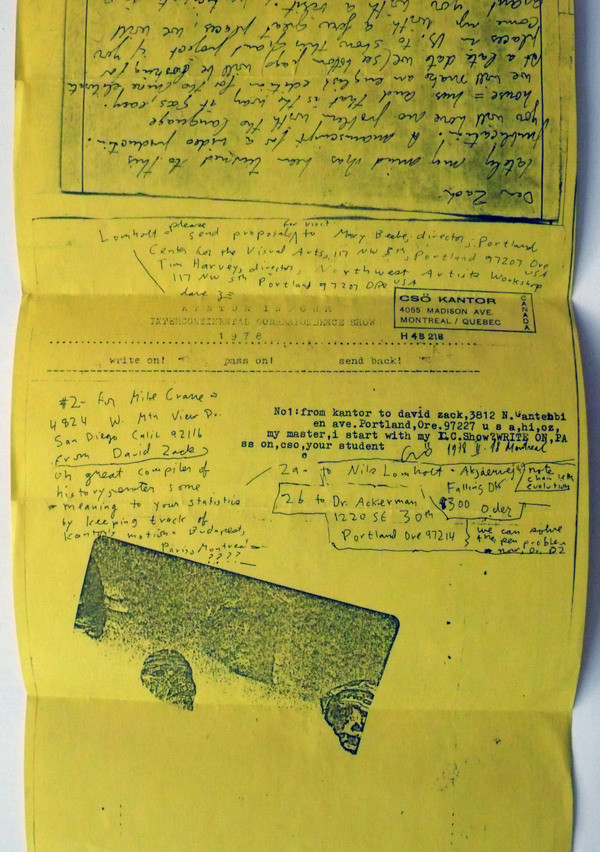 Dear Zack
lately my mind has been turned to this
publication. A manuscript for a video production.
you will have no problem with the language
house = hus and that is the way it goes easy.
we will make an english edition for the
at a late date (see bottom page) will be looking for
places in US. to show this and project if you
come my with a few great places, we will
grant you with a visit.
please for visit
Lomholt send proposal to Mary Beebe, director, Portland
Center for the Visual Arts, 117 NW 5th, Portland 97209 Ore
USA
Tim Harvey, director, Northwest Artists Workshop
117 NW 5th Portland 97209 ORE USA
dave z
KANTOR IN
INTERCONTINENTAL CORRESPONDENCE SHOW
1978
CSÖ KANTOR
4055 MADISON AVE.
MONTREAL / QUEBEC
CANADA
H4B 2T8
write on! pass on! send back!
#2- For Mike Crane
4824 W. Mtn View Dr.
San Diego Calif 92116
From David Zack
Oh great compiler of
history, some
meaning to your statistics
by keeping track of
Kantor's motion. Budapest,
Paris, Montreal
????
No1:from kantor to david zack,3812 N.
en ave.Portland,Ore.97227 u s a,hi,oz,
my master,i start with my I.C.Show?WRITE ON,PA
ss on,cso,your student
1978 II. 18 Montreal
2a- to Niels Lomholt -
Falling DK
8300 Oder
note
chain letter
evolution
2b to Dr. Ackerman
1220 SE 30th
Portland Ore 97214
we can solve
the pen problem
now, Dr. DZ